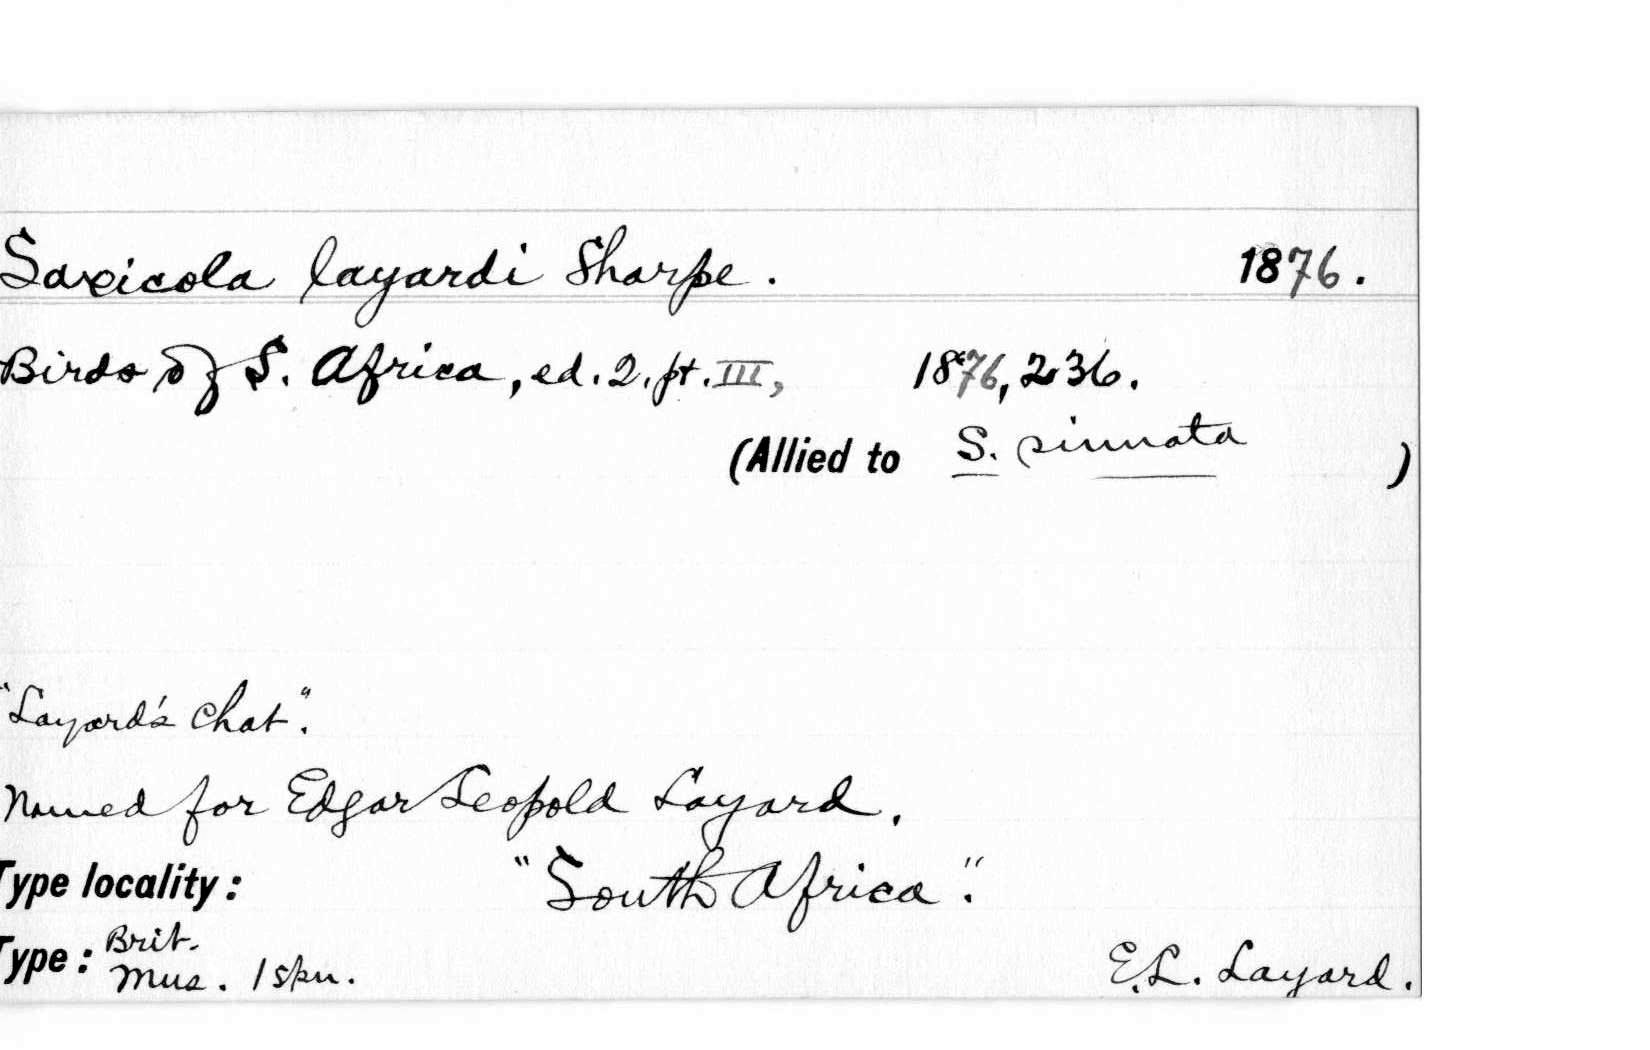 Saxicola layardi Sharpe. 1876.
Birds of S. Africa, ed. 2. pt. III, 1876, 236.
(Allied to S. sinuata )
"Layard's Chat".
Named for Edgar Leopold Layard.
Type locality: "South Africa".
Type: Brit. Mus. 1 skn. E.L. Layard.